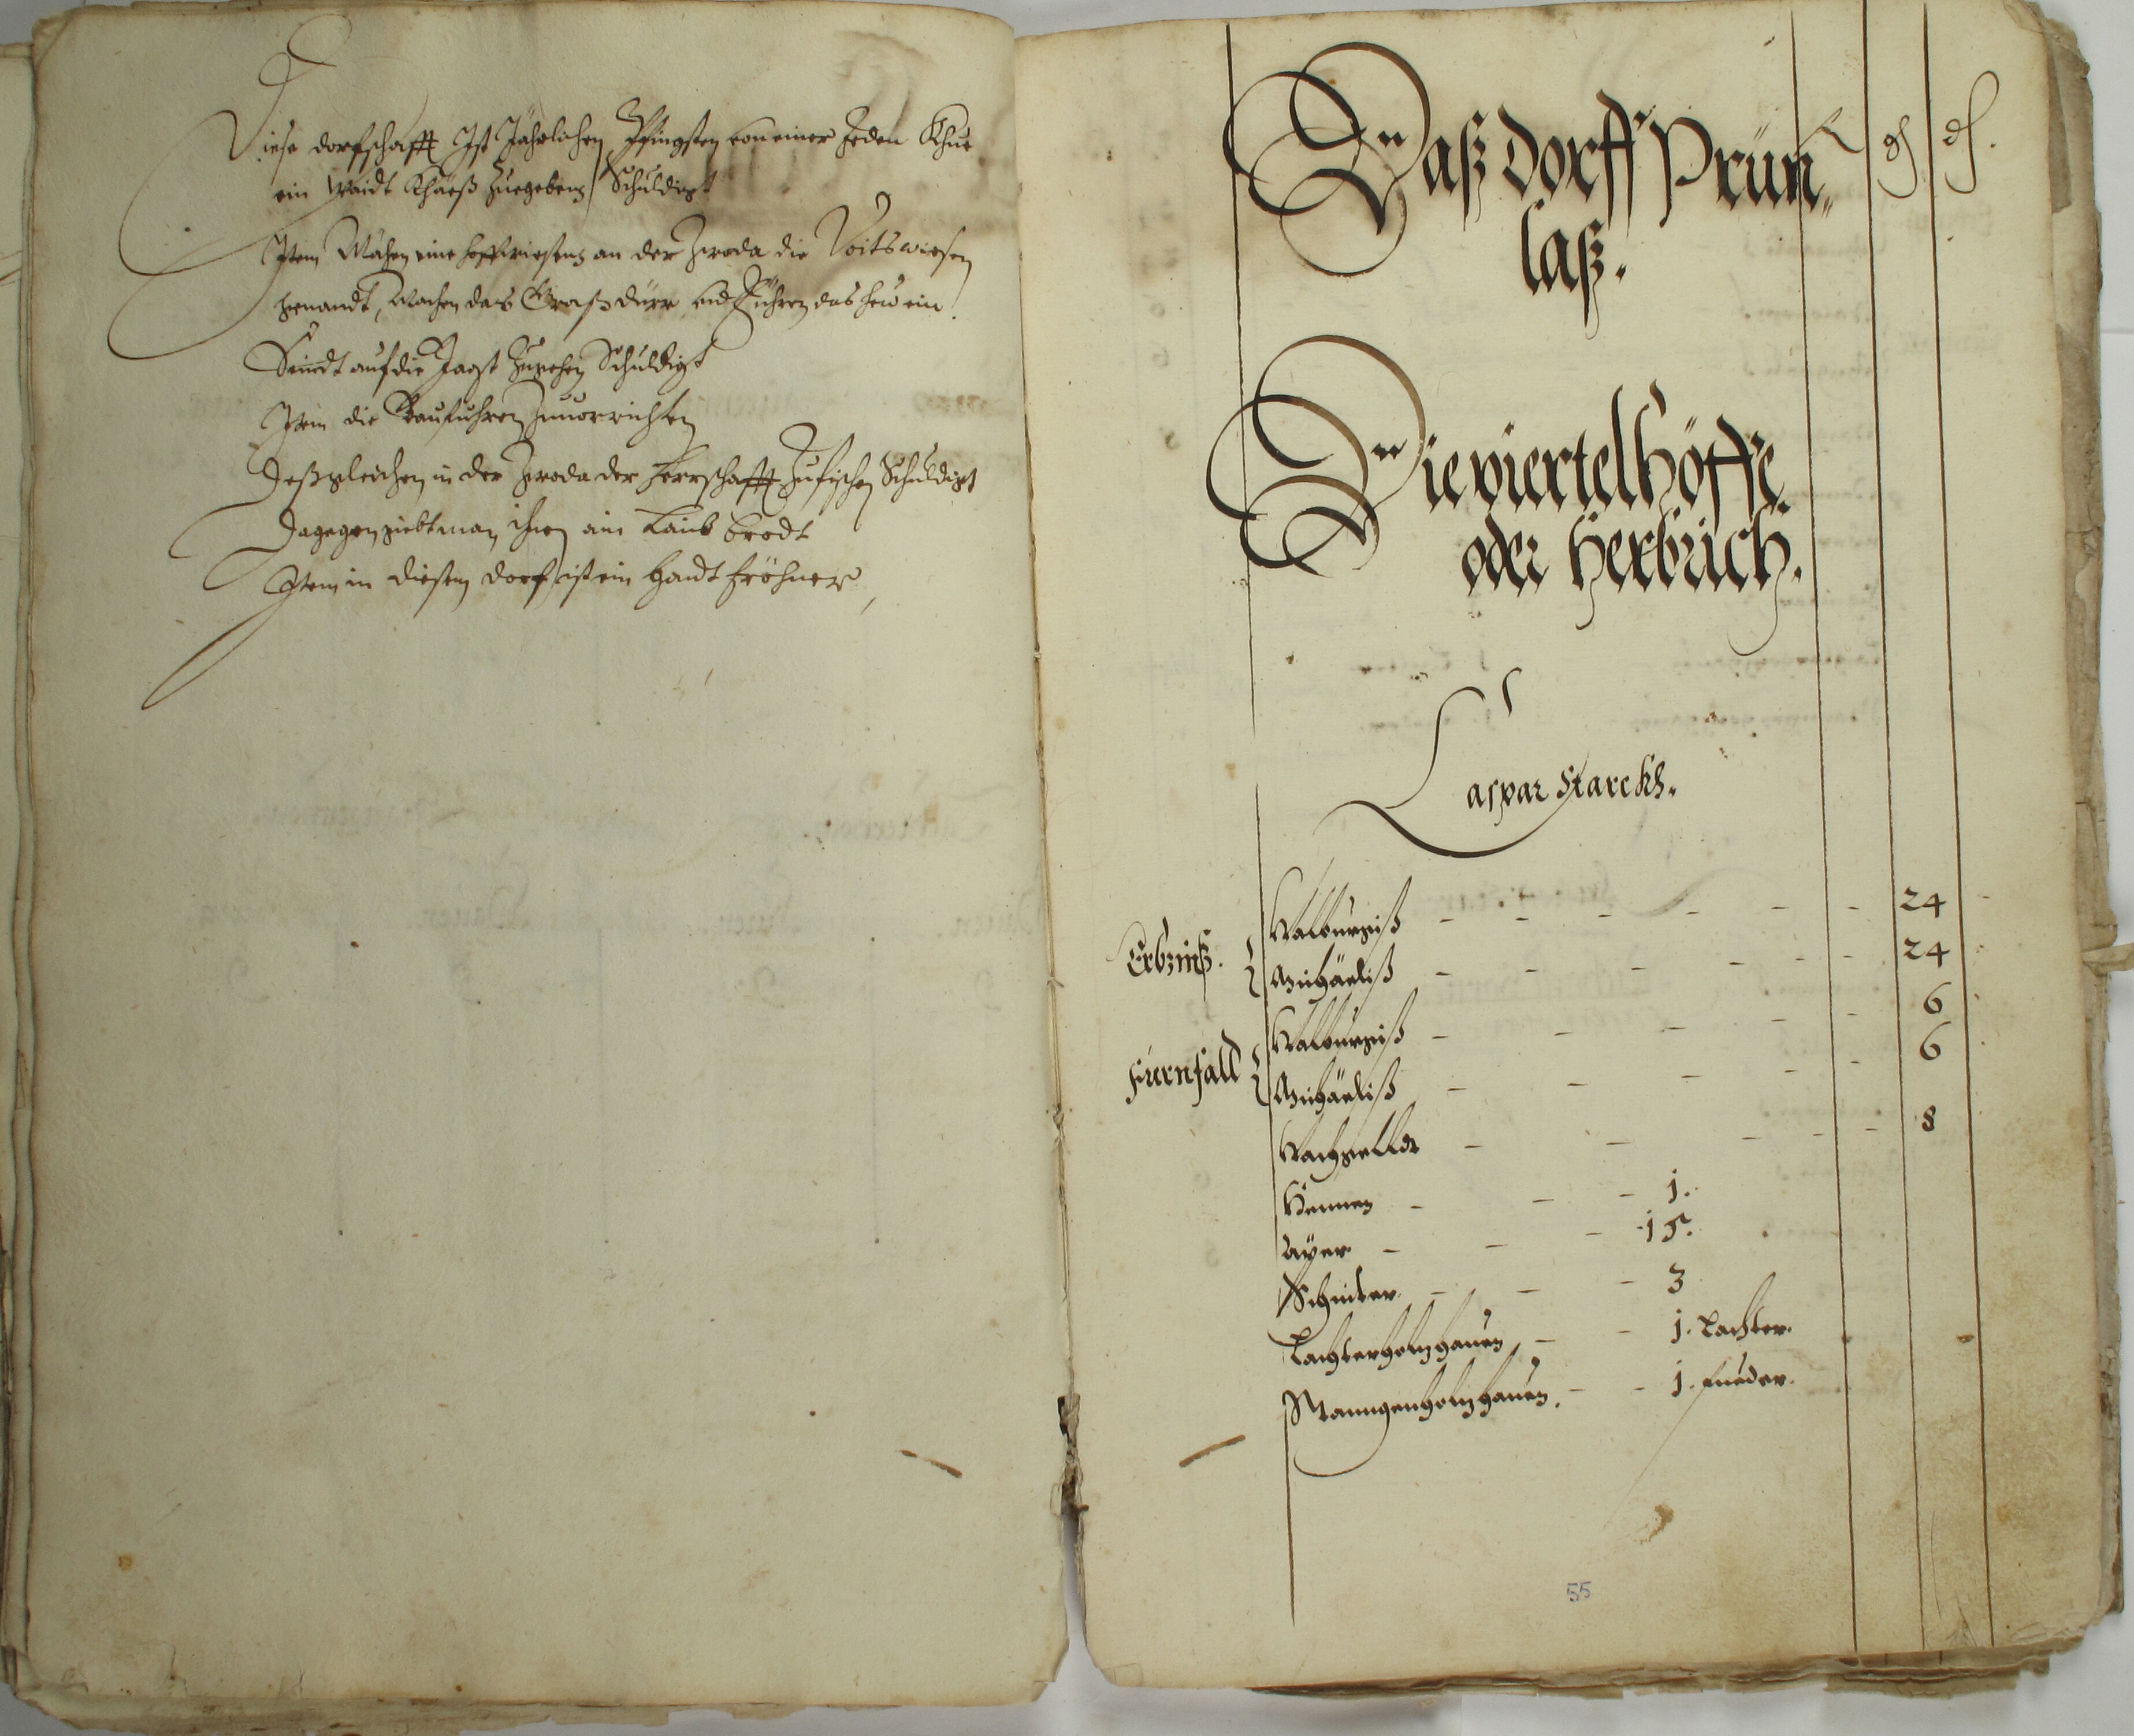 Diese dorfschafft Ist Jährlichen Pfingsten von einer Jeden Khue
ein Waidt Khäeß Zuegeben Schuldigt
Item Mähen eine hoffwiesen an der Zwoda die Voitswiesen
genandt, Machen das Graß dürr vnd führen das heu ein.
Seindt auf die Jagt Zugehen Schuldigt
Item die Baufuhren Zuuorrichten
Deßgleichen in der Zwoda der Herrschafft Zufischen Schuldigt
Dagegen giebt man ihnen ein Laib brodt
Item in diesem dorf ist ein Handt fröhner,
Daß dorff Prün„
laß.
Die viertel höffe
oder Herbrich.
Caspar Starckh.
Erbzinß.
Walburgiß - - - - - - 24
Michäeliß - - - - - - 24
Fürnfall
Walburgiß - - - - - 6
Michäeliß - - - - - 6
Wachgellt - - - - - 8
Hennen - - - 1.
Ayer - - - 15.
Schniter - - - 3
Lachterholz hauen - - 1. Lachter.
Stanngenholz hauen. - - 1. fueder.
55